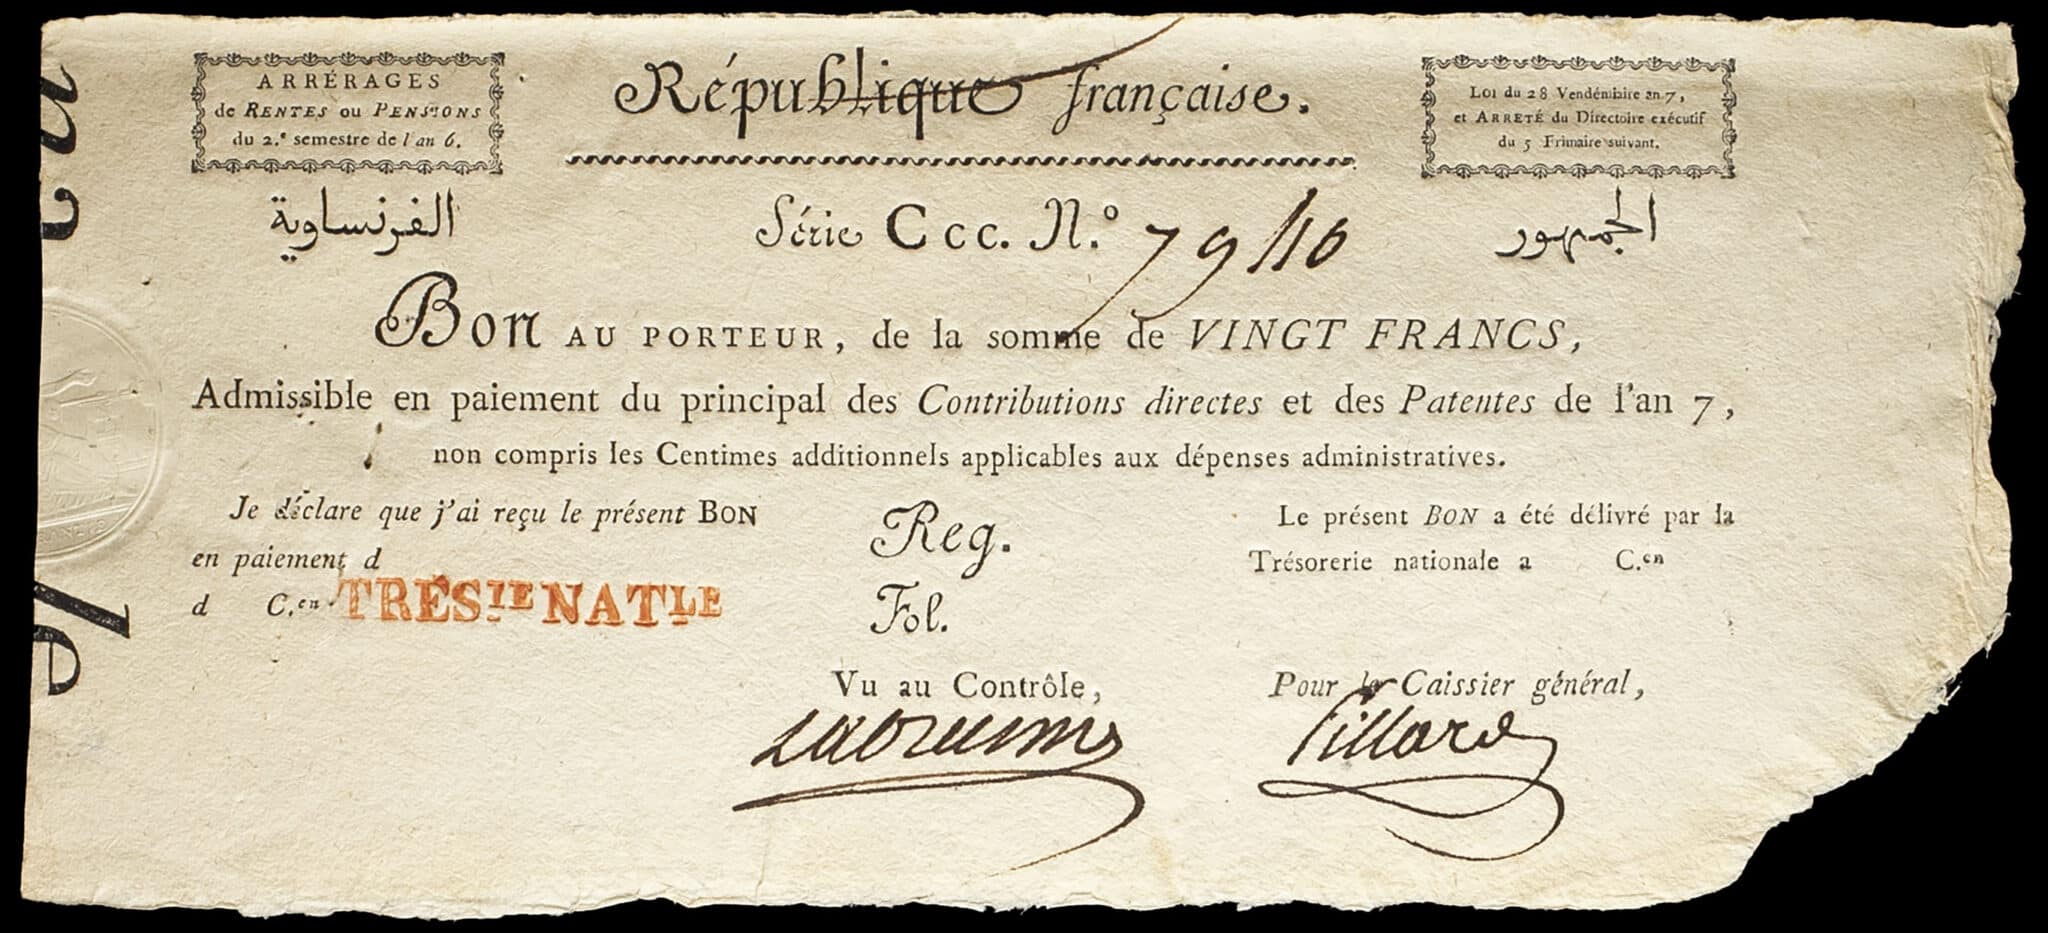 ARRÉRAGES
de RENTES ou PENSIONS
du 2.e semestre de l'an 6.
République française.
Loi du 28 Vendémiaire an 7,
et ARRETÉ du Directoire exécutif
du 5 Frimaire suivant.
الفرنساوية
Série Ccc. N.o 7940
الجمهور
Bon AU PORTEUR, de la somme de VINGT FRANCS,
Admissible en paiement du principal des Contributions directes et des Patentes de l'an 7,
non compris les Centimes additionnels applicables aux dépenses administratives.
Je déclare que j'ai reçu le présent BON
en paiement d
d C.en
TRÉSIE NATLE
Reg.
Fol.
Le présent BON a été délivré par la
Trésorerie nationale a C.en
Vu au Contrôle,
Pour le Caissier général,